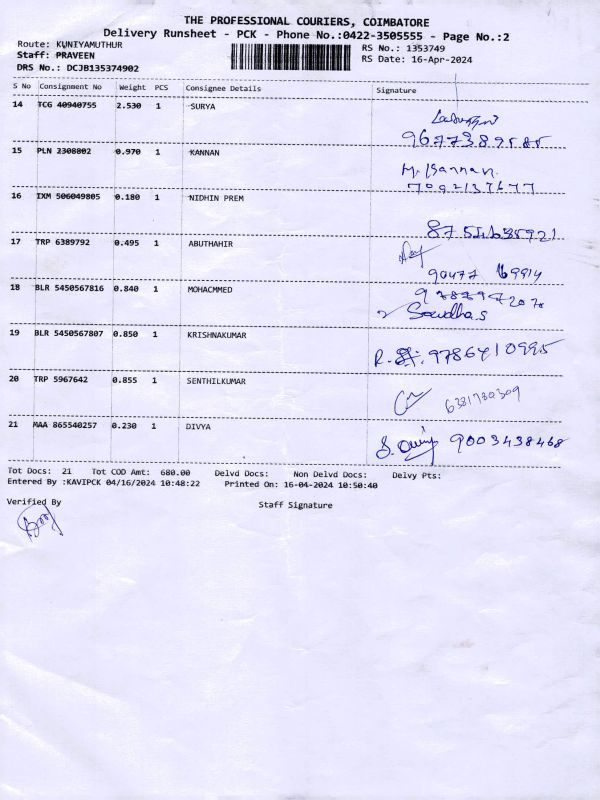 THE PROFESSIONAL COURIERS, COIMBATORE
Delivery Runsheet - PCK - Phone No.:0422-3505555 - Page No.:2
Route: KUNIYAMUTHUR
RS No.: 1353749
Staff: PRAVEEN
RS Date: 16-Apr-2024
DRS No.: DCJB135374902
S No Consignment No Weight PCS Consignee Details Signature
14 TCG 40940755 2.530 1 SURYA
9677389585
15 PLN 2308802 0.970 1 KANNAN M. Kannan.
7092137677
16 TXM 506049805 0.180 1 NIDHIN PREM
8754635921
17 TRP 6389792 0.495 1 ABUTHAHIR
90477 69914
18 BLR 5450567816 0.840 1 MOHACMMED
Saudha.S
19 BLR 5450567807 0.850 1 KRISHNAKUMAR
9786410995
20 TRP 5967642 0.855 1 SENTHILKUMAR
21 MAA 865540257 0.230 1 DIVYA
9003438468
Tot Docs: 21 Tot COD Amt: 680.00 Delvd Docs: Non Delvd Docs: Delvy Pts:
Entered By :KAVIPCK 04/16/2024 10:48:22 Printed On: 16-04-2024 10:50:40
Verified By
Staff Signature